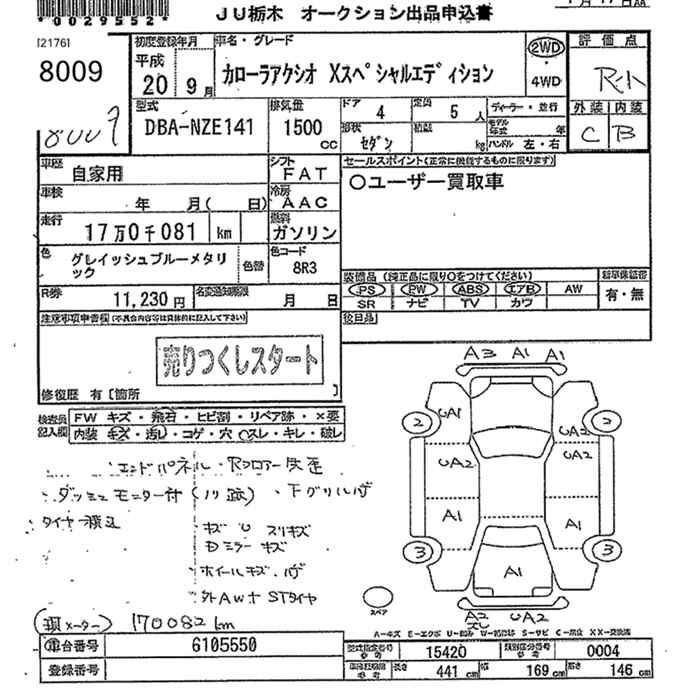 *0029552*
JU栃木 オークション出品申込書
[2176]
8009
初度登録年月
平成
20 9月
車名・グレード
カローラアクシオ Xスペシャルエディション
2WD
4WD
評価点
外装 内装
C B
型式
DBA-NZE141
排気量
1500
cc
ドア 4
定員 5 人
ディーラー・並行
形状 セダン
積載 kg
モデル年式 年
ハンドル 左・右
車歴
自家用
シフト
FAT
車検
年 月( 日)
冷房
AAC
走行
17万0千081 km
燃料
ガソリン
色
グレイッシュブルーメタリック
色替
色コード
8R3
R券
11,230 円
名変通知期限
月 日
セールスポイント(正常に機能するものに限ります)
○ユーザー買取車
装備品(純正品に限り○をつけてください)
PS PW ABS エアB AW
SR ナビ TV カワ
新車保証書
有・無
後日品
注意事項申告欄(不具合内容等は具体的に記入して下さい)
売りつくしスタート
修復歴 有〔箇所 〕
検査員記入欄
FW キズ・飛石・ヒビ割・リペア跡・×要
内装 キズ・汚レ・コゲ・穴・スレ・キレ・破レ
A3 A1 A1
UA1
2 2
UA2
UA2 UA2
A1 A1
3 3
A1
スペア
A2 UA2
・エンドパネル・Rフロアー歪
・ダッシュモニター付(ノリ跡)・下グリルハゲ
・タイヤ積込
・キズ U スリキズ
・Dミラーキズ
・ホイールキズ・ハゲ
・外AW付 STタイヤ
現メーター 170082 km
車台番号 6105550
登録番号
型式指定番号 参考 15420
類別区分番号 参考 0004
長さ 441 cm 幅 169 cm 高さ 146 cm